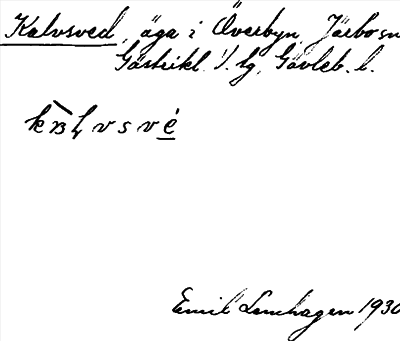 Kalvsved, äga i Överbyn, Järbo sn
Gästrikl. V. tg, Gävleb. l.
Emil Lenhagen 1930